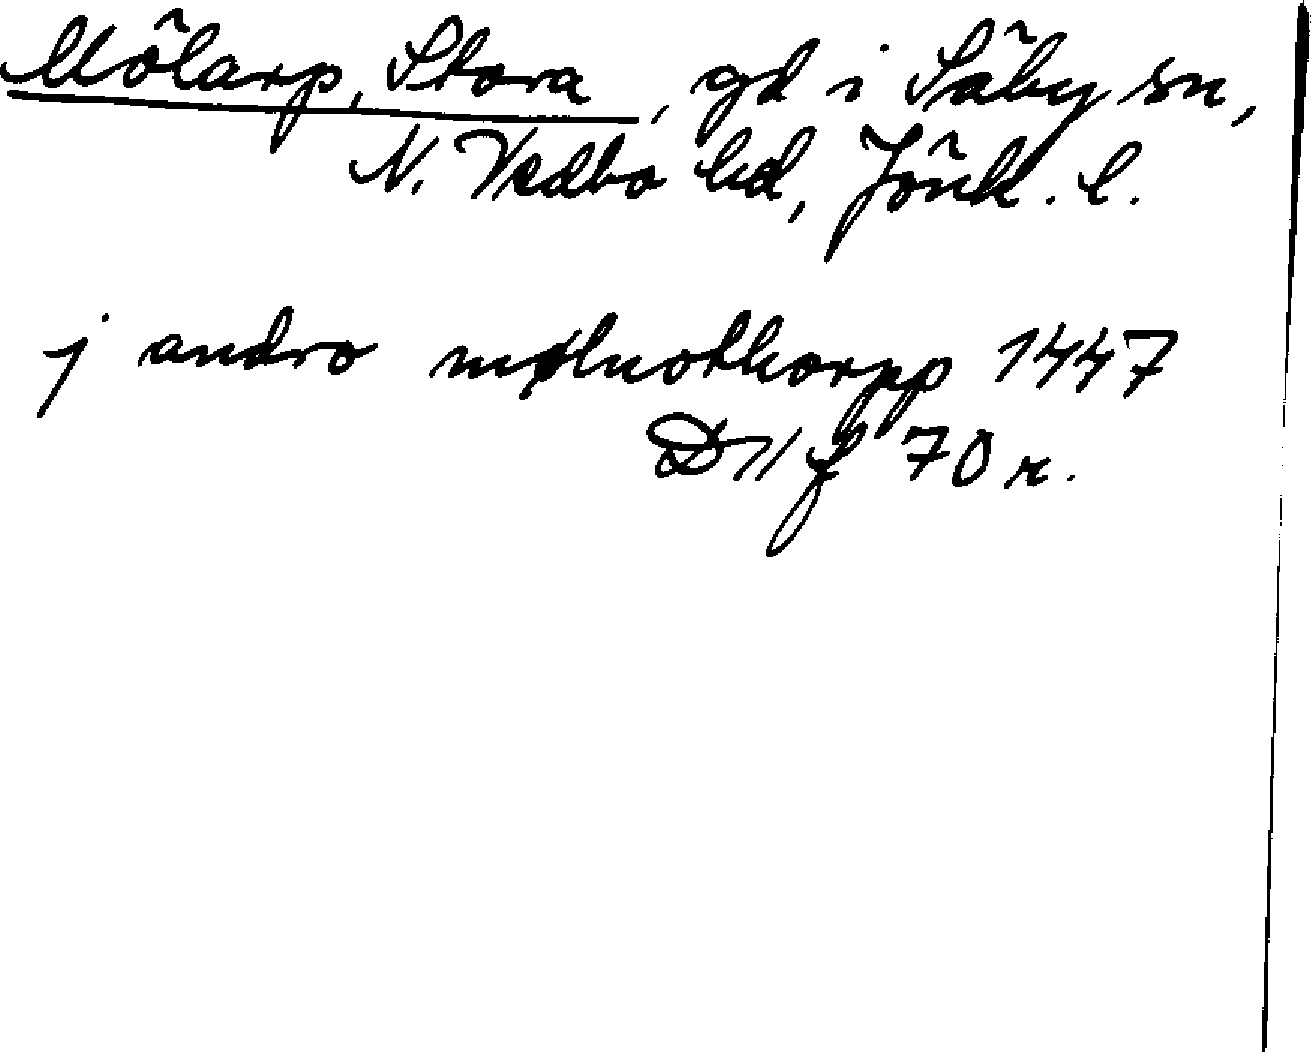 Mölarp, Stora, gd i Säby sn,
N. Vedbo hd, Jönk. l.
j andro mølnothorpp 1447
D11 f 70 r.